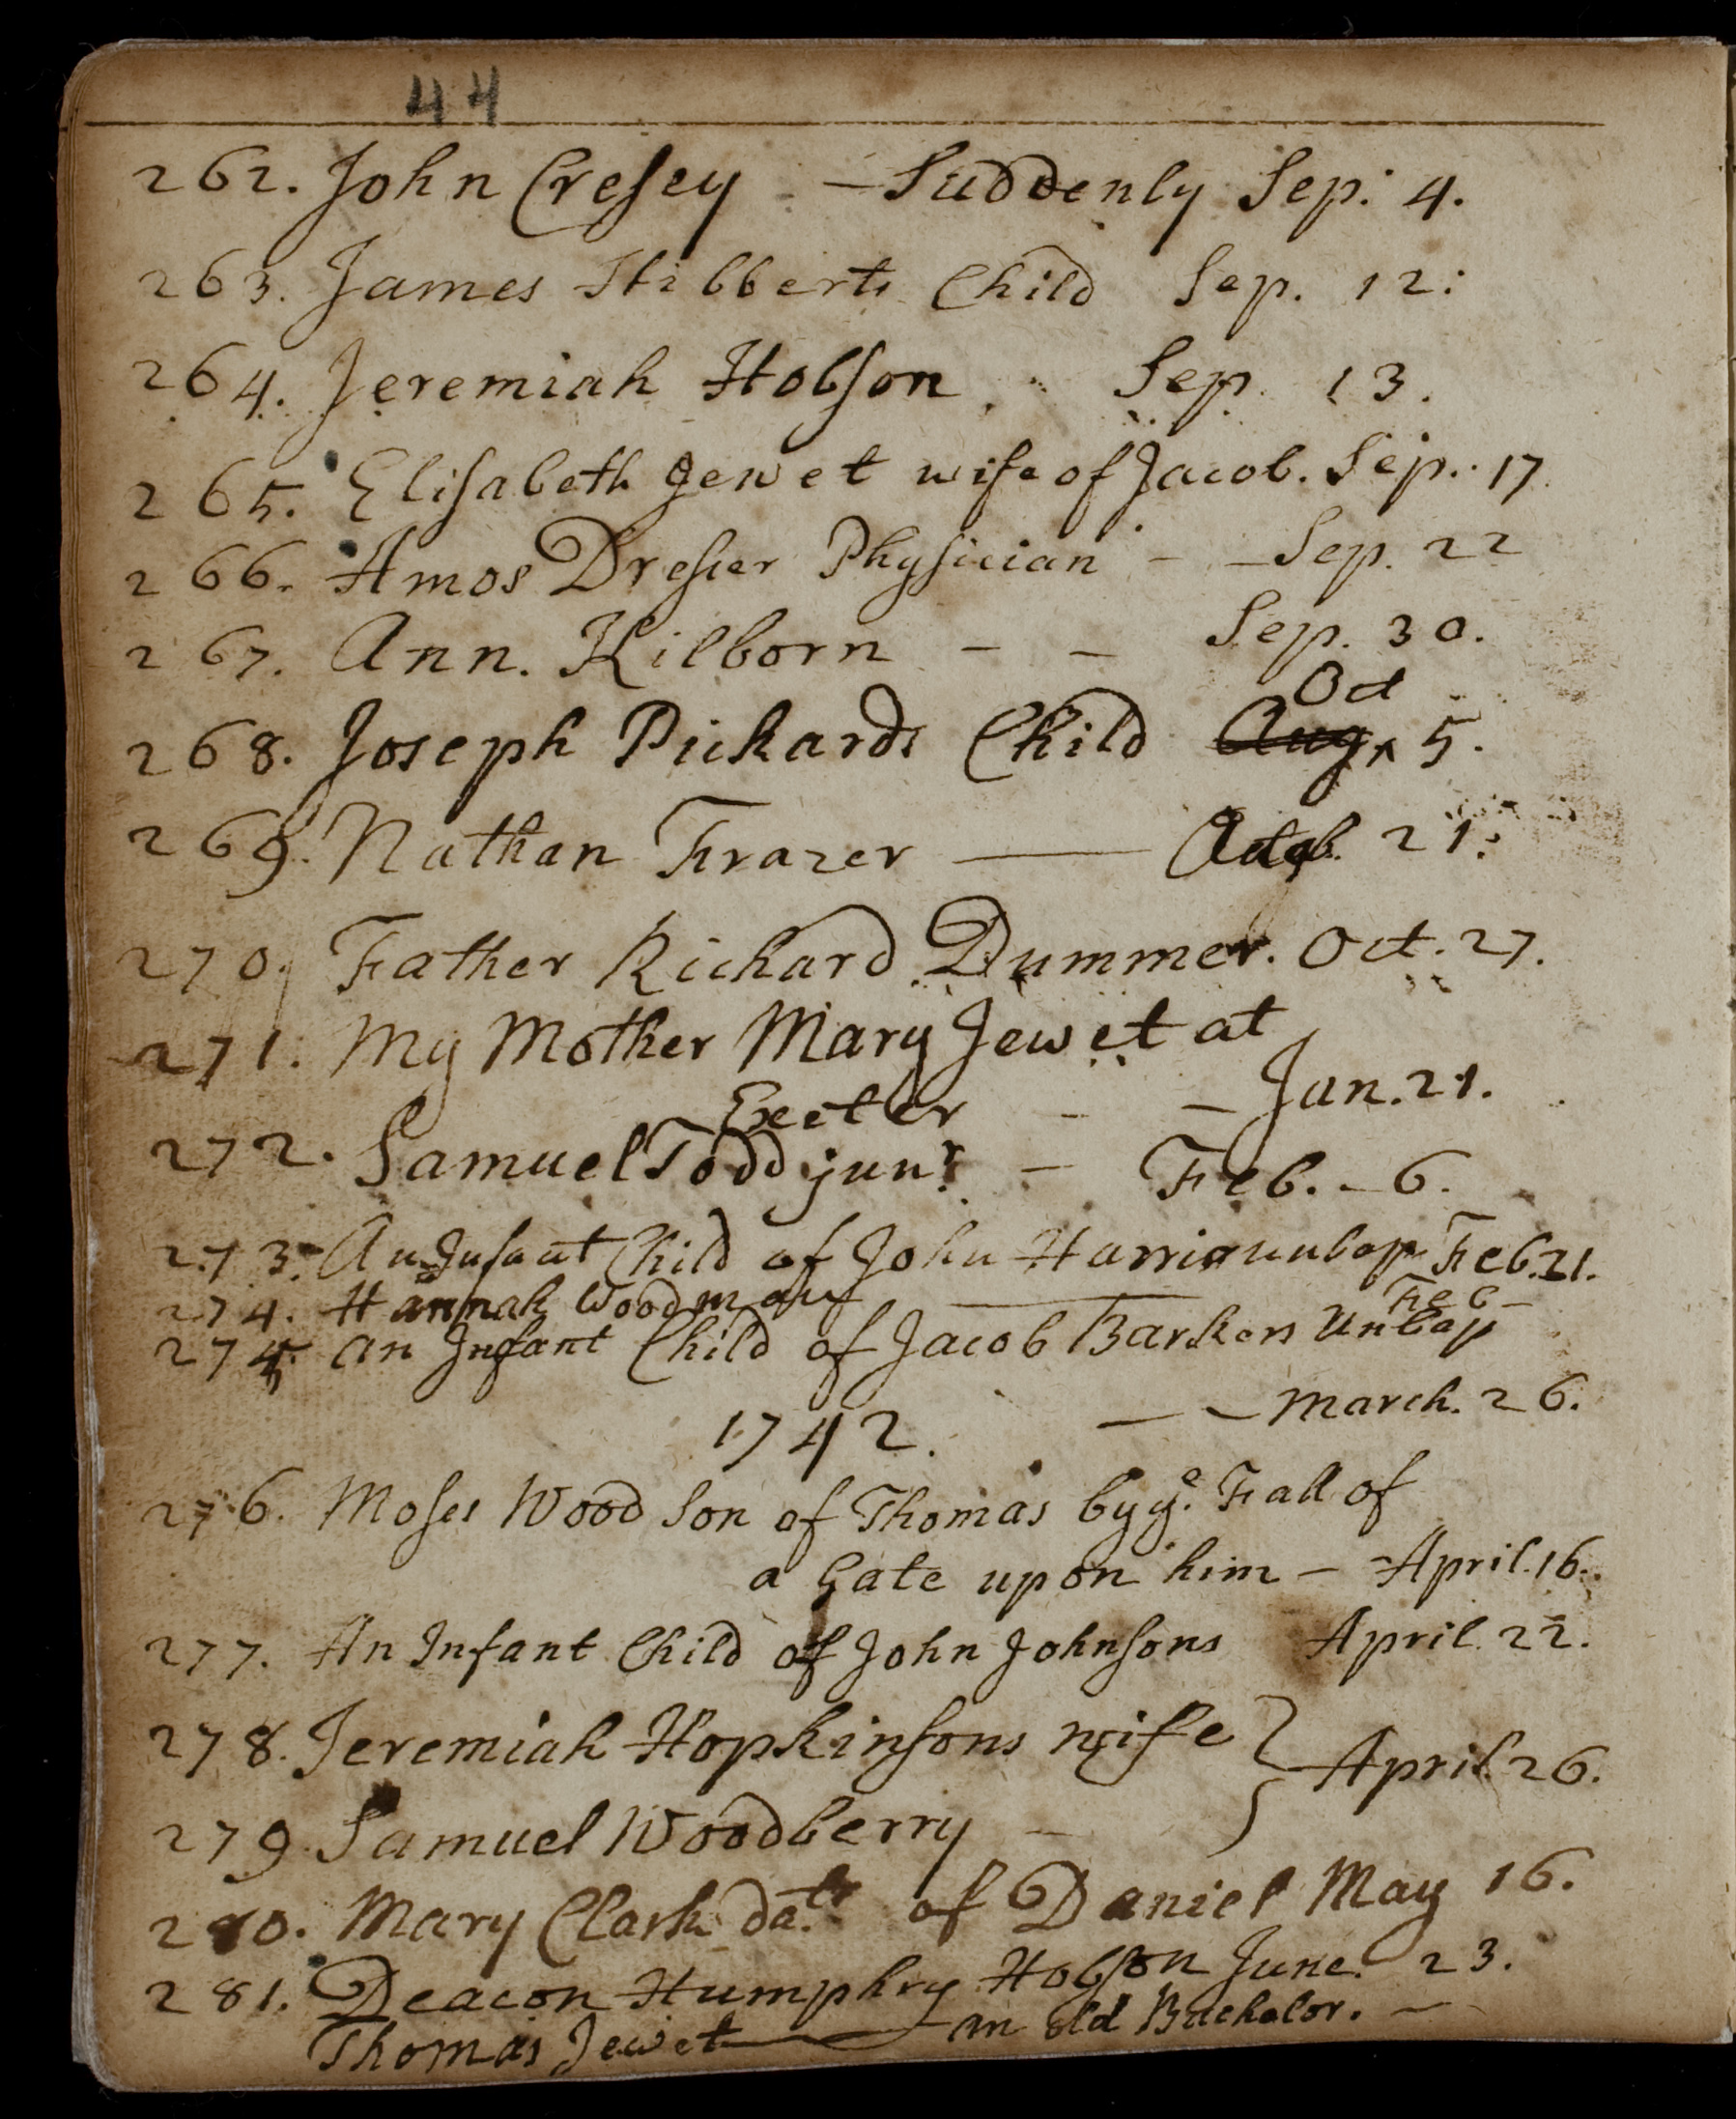 44
262. John Cresey - - Suddenly Sep: 4.
263. James Hibberts Child Sep. 12:
264. Jeremiah Hobson. Sep. 13.
265. Elisabeth Jewet wife of Jacob. Sep. 17
266. Amos Dresser Physician - - Sep. 22
267. Ann. Kilborn - - Sep. 30.
Oct
268. Joseph Pickards Child Aug ^ 5.
269. Nathan Frazer — Octob. 21.
270. Father Richard Dummer. Oct. 27.
271. My Mother Mary Jewet at
Exeter - - Jan. 21.
272. Samuel Todd junr. - Feb. - 6.
273. An Infant Child of John Harris unbap. Feb. 21.
274. Hannah Woodman — Feb -
275. An Infant Child of Jacob Barkers Unbap
- - March. 26.
1742.
276. Moses Wood son of Thomas by ye. Fall of
a Gate upon him - April. 16.
277. An Infant Child of John Johnsons April. 22.
278. Jeremiah Hopkinsons wife } April. 26.
279. Samuel Woodberry -
280. Mary Clark datr. of Daniel May 16.
281. Deacon Humphry Hobson June. 23.
Thomas Jewet — an old Bachelor. -